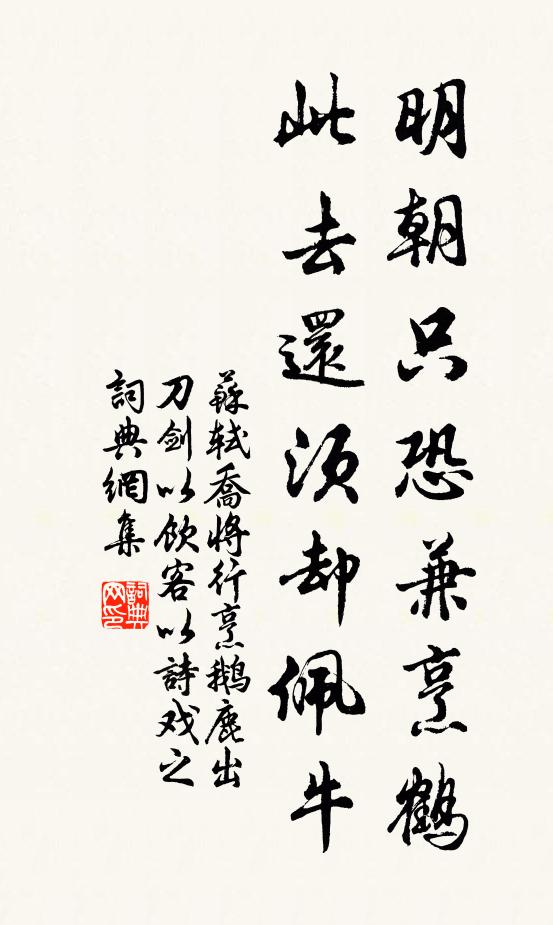 明朝只恐兼烹鶴
此去還須却佩牛
蘇軾喬將行烹鵝鹿出
刀劍以飲客以詩戏之
詞典網集
詞典
网印